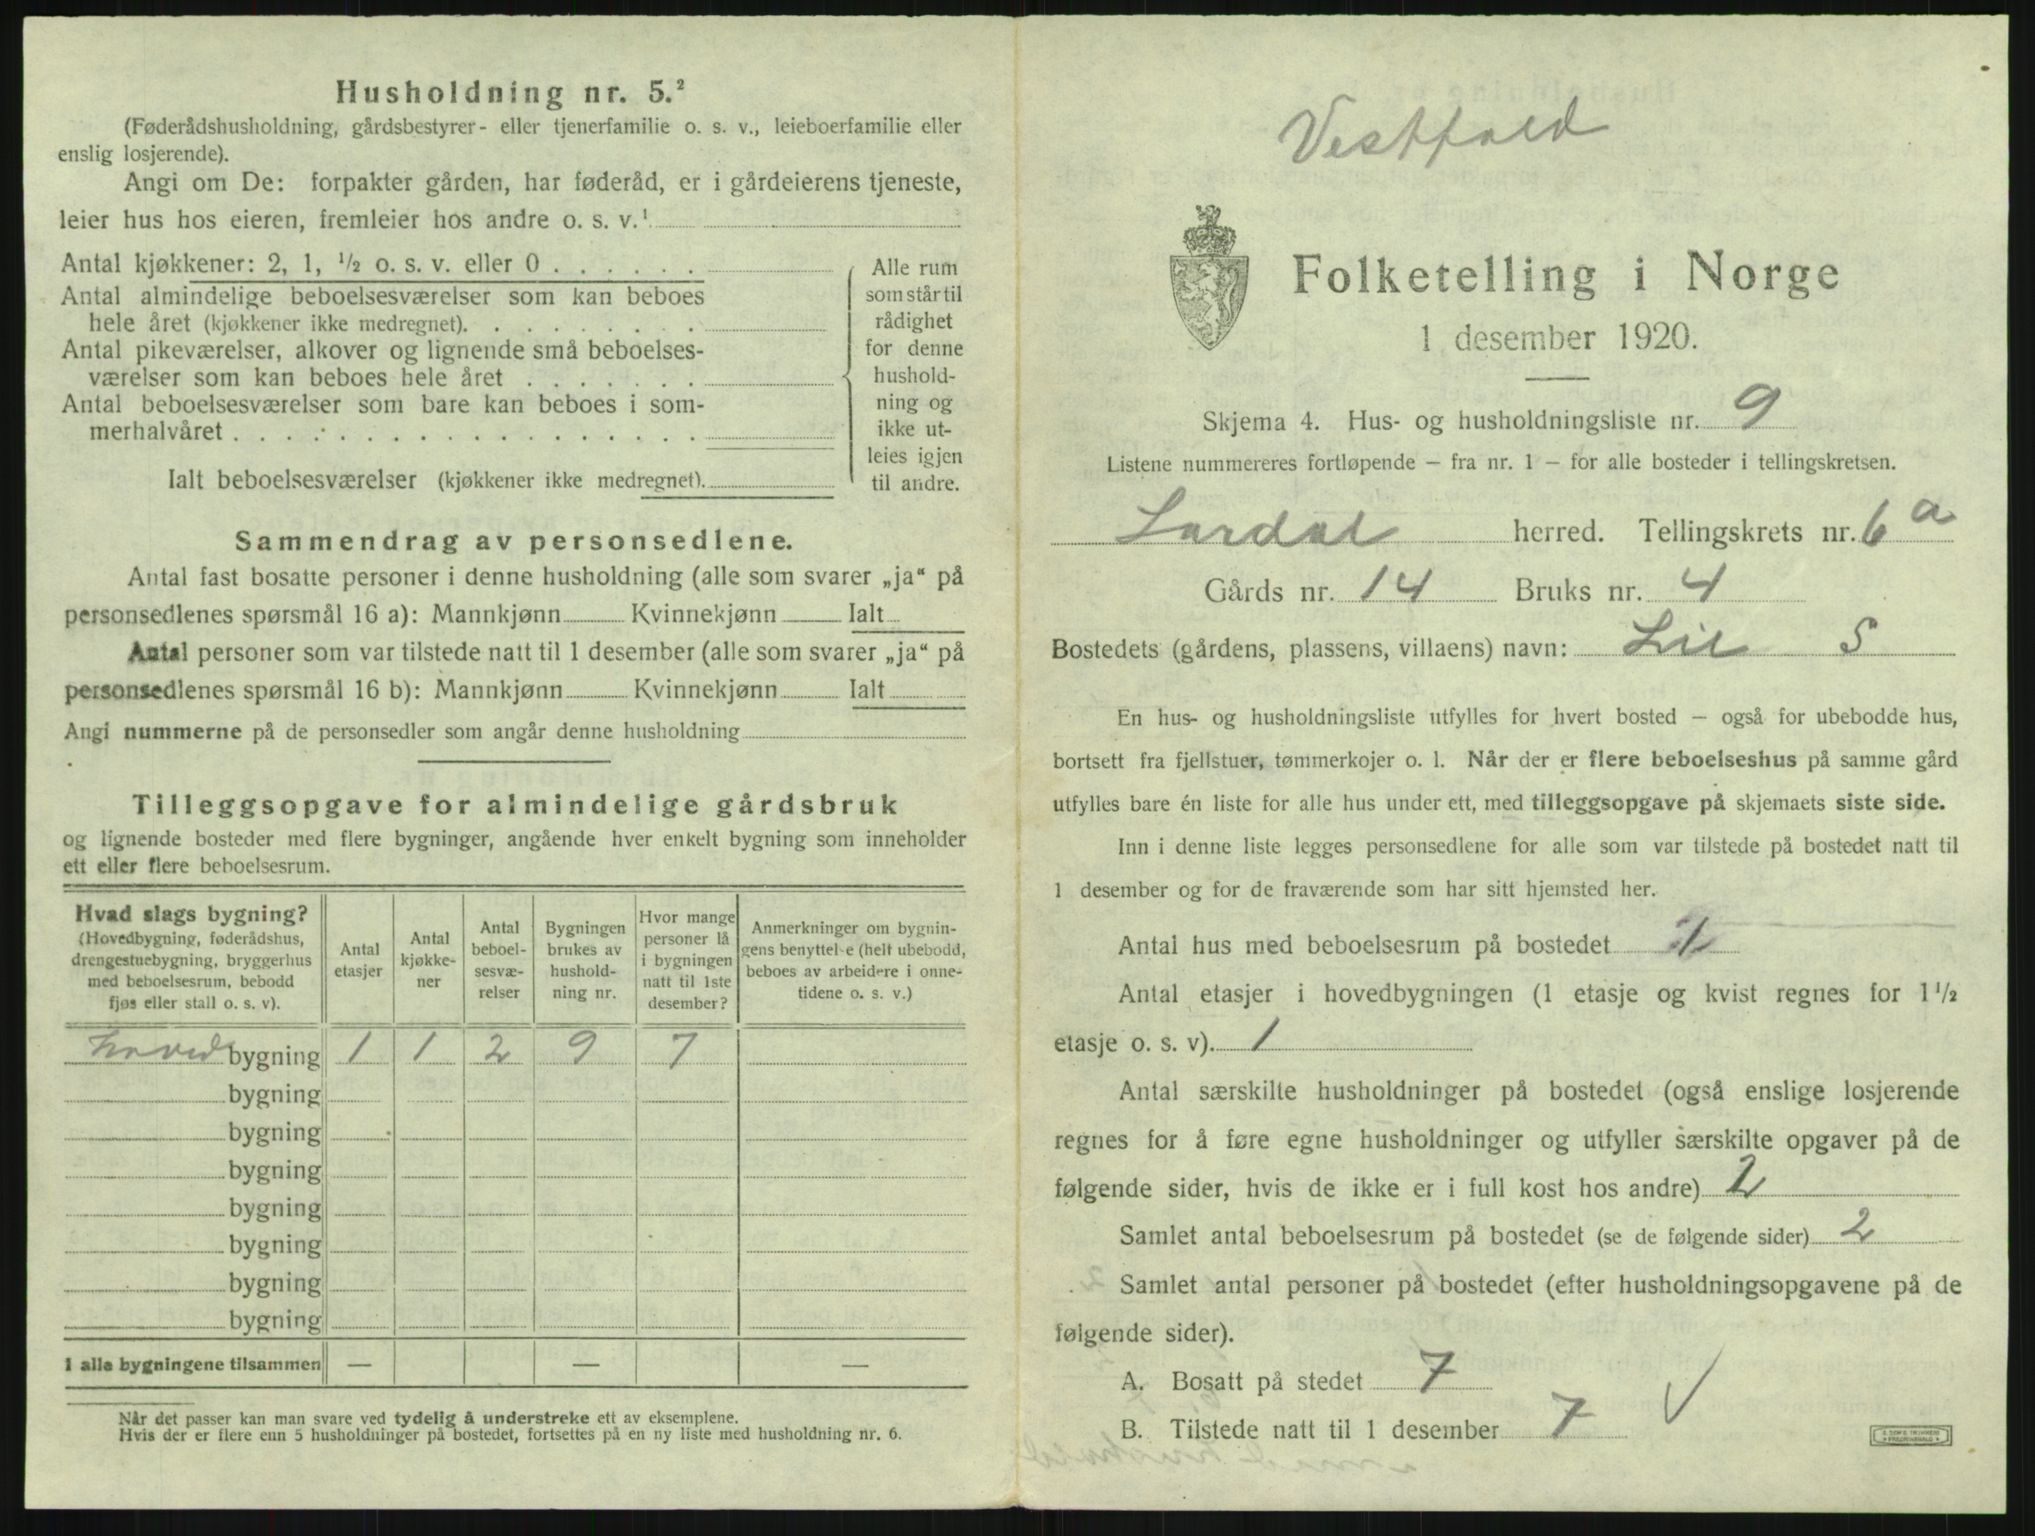 Husholdning nr. 5.²
(Føderådshusholdning, gårdsbestyrer- eller tjenerfamilie o. s. v., leieboerfamilie eller
enslig losjerende).
Angi om De: forpakter gården, har føderåd, er i gårdeierens tjeneste,
leier hus hos eieren, fremleier hos andre o. s. v.¹
Antal kjøkkener: 2, 1, ½ o. s. v. eller 0 . . . . . .
Antal almindelige beboelsesværelser som kan beboes
hele året (kjøkkener ikke medregnet). . . . . . . . .
Antal pikeværelser, alkover og lignende små beboelses-
værelser som kan beboes hele året . . . . . . .
Antal beboelsesværelser som bare kan beboes i som-
merhalvåret . . . . . . . . . . . . . . . . . .
Ialt beboelsesværelser (kjøkkener ikke medregnet).
Alle rum
som står til
rådighet
for denne
hushold-
ning og
ikke ut-
leies igjen
til andre.
Sammendrag av personsedlene.
Antal fast bosatte personer i denne husholdning (alle som svarer „ja“ på
personsedlenes spørsmål 16 a): Mannkjønn Kvinnekjønn Ialt
Antal personer som var tilstede natt til 1 desember (alle som svarer „ja“ på
personsedlenes spørsmål 16 b): Mannkjønn Kvinnekjønn Ialt
Angi nummerne på de personsedler som angår denne husholdning
Tilleggsopgave for almindelige gårdsbruk
og lignende bosteder med flere bygninger, angående hver enkelt bygning som inneholder
ett eller flere beboelsesrum.
Hvad slags bygning?
(Hovedbygning, føderådshus,
drengestuebygning, bryggerhus
med beboelsesrum, bebodd
fjøs eller stall o. s. v).
Antal
etasjer
Antal
kjøkke-
ner
Antal
beboel-
sesvæ-
relser
Bygningen
brukes av
hushold-
ning nr.
Hvor mange
personer lå
i bygningen
natt til 1ste
desember?
Anmerkninger om bygnin-
gens benyttelse (helt ubebodd,
beboes av arbeidere i onne-
tidene o. s. v.)
Hovedbygning 1 1 2 9 7
bygning
bygning
bygning
bygning
bygning
bygning
bygning
I alle bygningene tilsammen — — —
Når det passer kan man svare ved tydelig å understreke ett av eksemplene.
Hvis der er flere enn 5 husholdninger på bostedet, fortsettes på en ny liste med husholdning nr. 6.
Vestfold
Folketelling i Norge
1 desember 1920.
Skjema 4. Hus- og husholdningsliste nr. 9
Listene nummereres fortløpende — fra nr. 1 — for alle bosteder i tellingskretsen.
Lardal herred. Tellingskrets nr. 6 a
Gårds nr. 14 Bruks nr. 4
Bostedets (gårdens, plassens, villaens) navn: Lie S
En hus- og husholdningsliste utfylles for hvert bosted — også for ubebodde hus,
bortsett fra fjellstuer, tømmerkojer o. l. Når der er flere beboelseshus på samme gård
utfylles bare én liste for alle hus under ett, med tilleggsopgave på skjemaets siste side.
Inn i denne liste legges personsedlene for alle som var tilstede på bostedet natt til
1 desember og for de fraværende som har sitt hjemsted her.
Antal hus med beboelsesrum på bostedet 1
Antal etasjer i hovedbygningen (1 etasje og kvist regnes for 1½
etasje o. s. v). 1
Antal særskilte husholdninger på bostedet (også enslige losjerende
regnes for å føre egne husholdninger og utfyller særskilte opgaver på de
følgende sider, hvis de ikke er i full kost hos andre) 2
Samlet antal beboelsesrum på bostedet (se de følgende sider) 2
Samlet antal personer på bostedet (efter husholdningsopgavene på de
følgende sider).
A. Bosatt på stedet 7
B. Tilstede natt til 1 desember 7